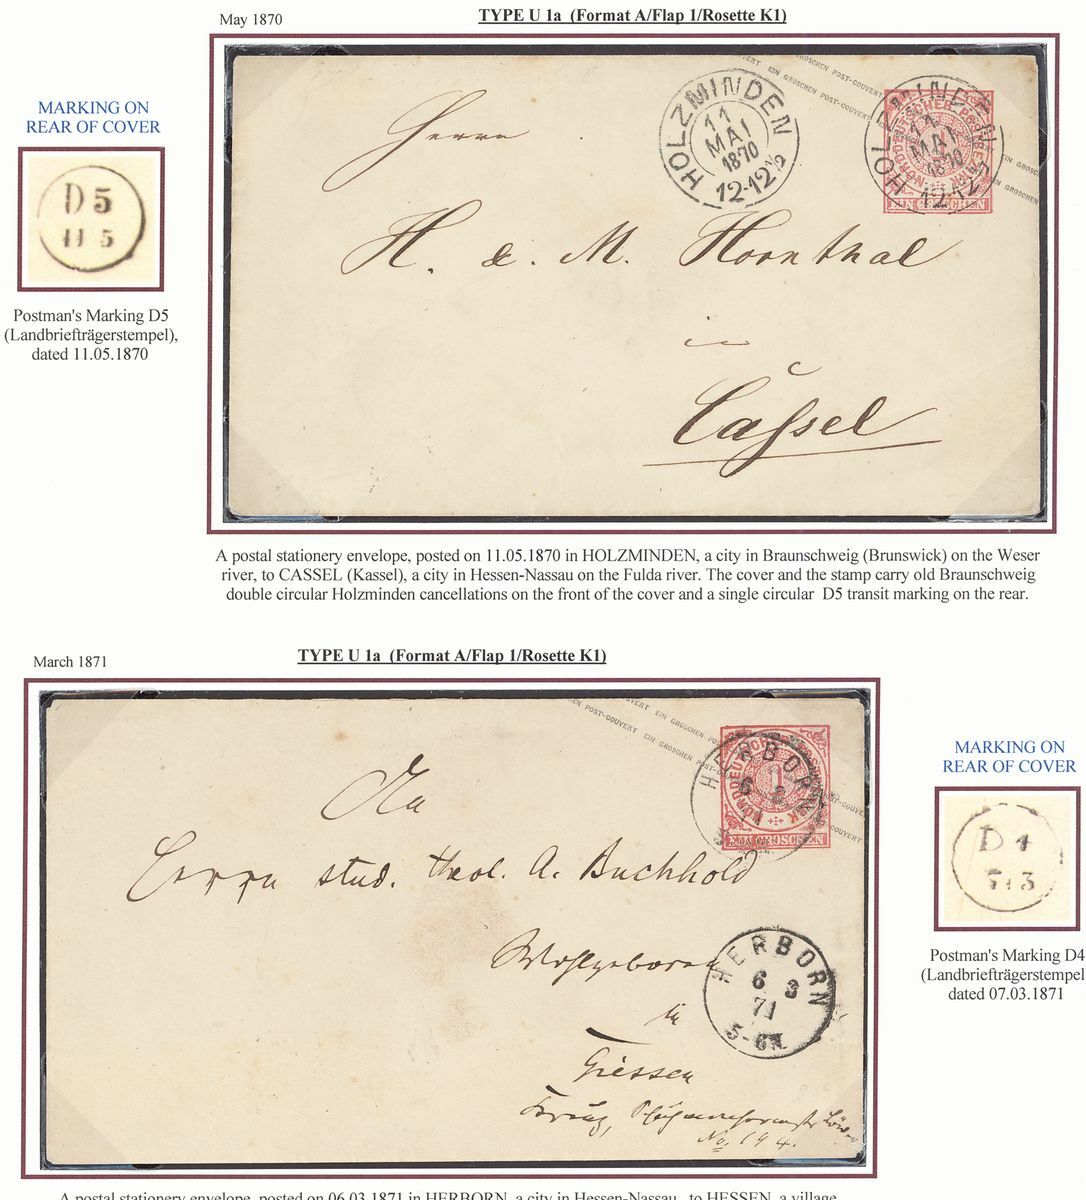 May 1870
TYPE U 1a (Format A/Flap 1/Rosette K1)
MARKING ON
REAR OF COVER
D 5
11 5
Postman's Marking D5
(Landbriefträgerstempel),
dated 11.05.1870
EIN GROSCHEN POST-COUVERT
HOLZMINDEN
11
MAI
1870
12-12½
HOLZMINDEN
11
MAI
1870
12-12½
EIN GROSCHEN
Herrn
H. & M. Hornthal
in
Cassel
A postal stationery envelope, posted on 11.05.1870 in HOLZMINDEN, a city in Braunschweig (Brunswick) on the Weser
river, to CASSEL (Kassel), a city in Hessen-Nassau on the Fulda river. The cover and the stamp carry old Braunschweig
double circular Holzminden cancellations on the front of the cover and a single circular D5 transit marking on the rear.
March 1871
TYPE U 1a (Format A/Flap 1/Rosette K1)
POST-COUVERT EIN GROSCHEN
HERBORN
1
EIN GROSCHEN
An
Herrn stud. theol. A. Buchhold
Wohlgeboren
in
Giessen
No. 194.
HERBORN
6 3
71
5-6N.
MARKING ON
REAR OF COVER
D 4
7 3
Postman's Marking D4
(Landbriefträgerstempel
dated 07.03.1871
A postal stationery envelope, posted on 06.03.1871 in HERBORN, a city in Hessen-Nassau, to HESSEN, a village